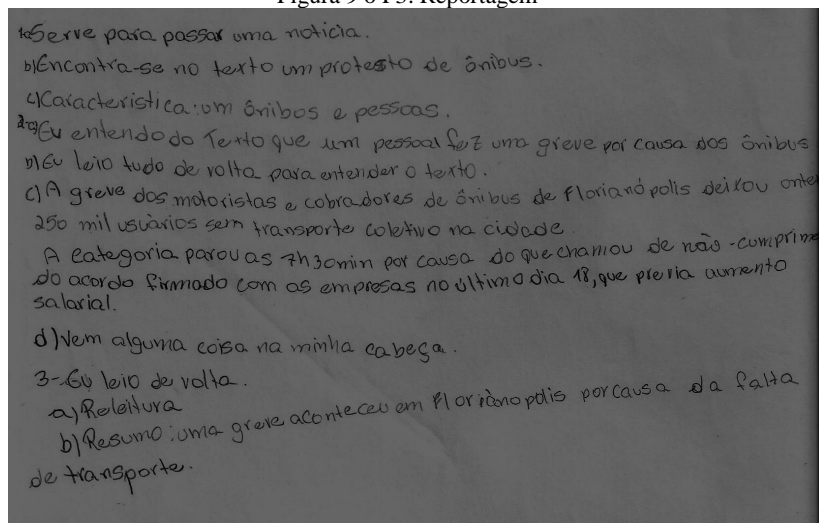 Figura 9 6 P3: Reportagem
1aServe para passar uma noticia.
b)Encontra-se no texto um protesto de ônibus.
c)Caracteristica: um ônibos e pessoas.
2-a)Eu entendo do Texto que um pessoal fez uma greve por causa dos ônibus
b)Eu leio tudo de volta para entender o texto.
c)A greve dos motoristas e cobradores de ônibus de Florianópolis deixou onte
250 mil usuários sem transporte coletivo na cidade
A categoria parou as 7h30min por causa do que chamou de não-cumprime
do acordo firmado com as empresas no último dia 18, que previa aumento
salarial.
d)Vem alguma coisa na minha cabeça.
3-Eu leio de volta.
a)Releitura
b)Resumo: uma greve aconteceu em Florianopolis por causa da falta
de transporte.